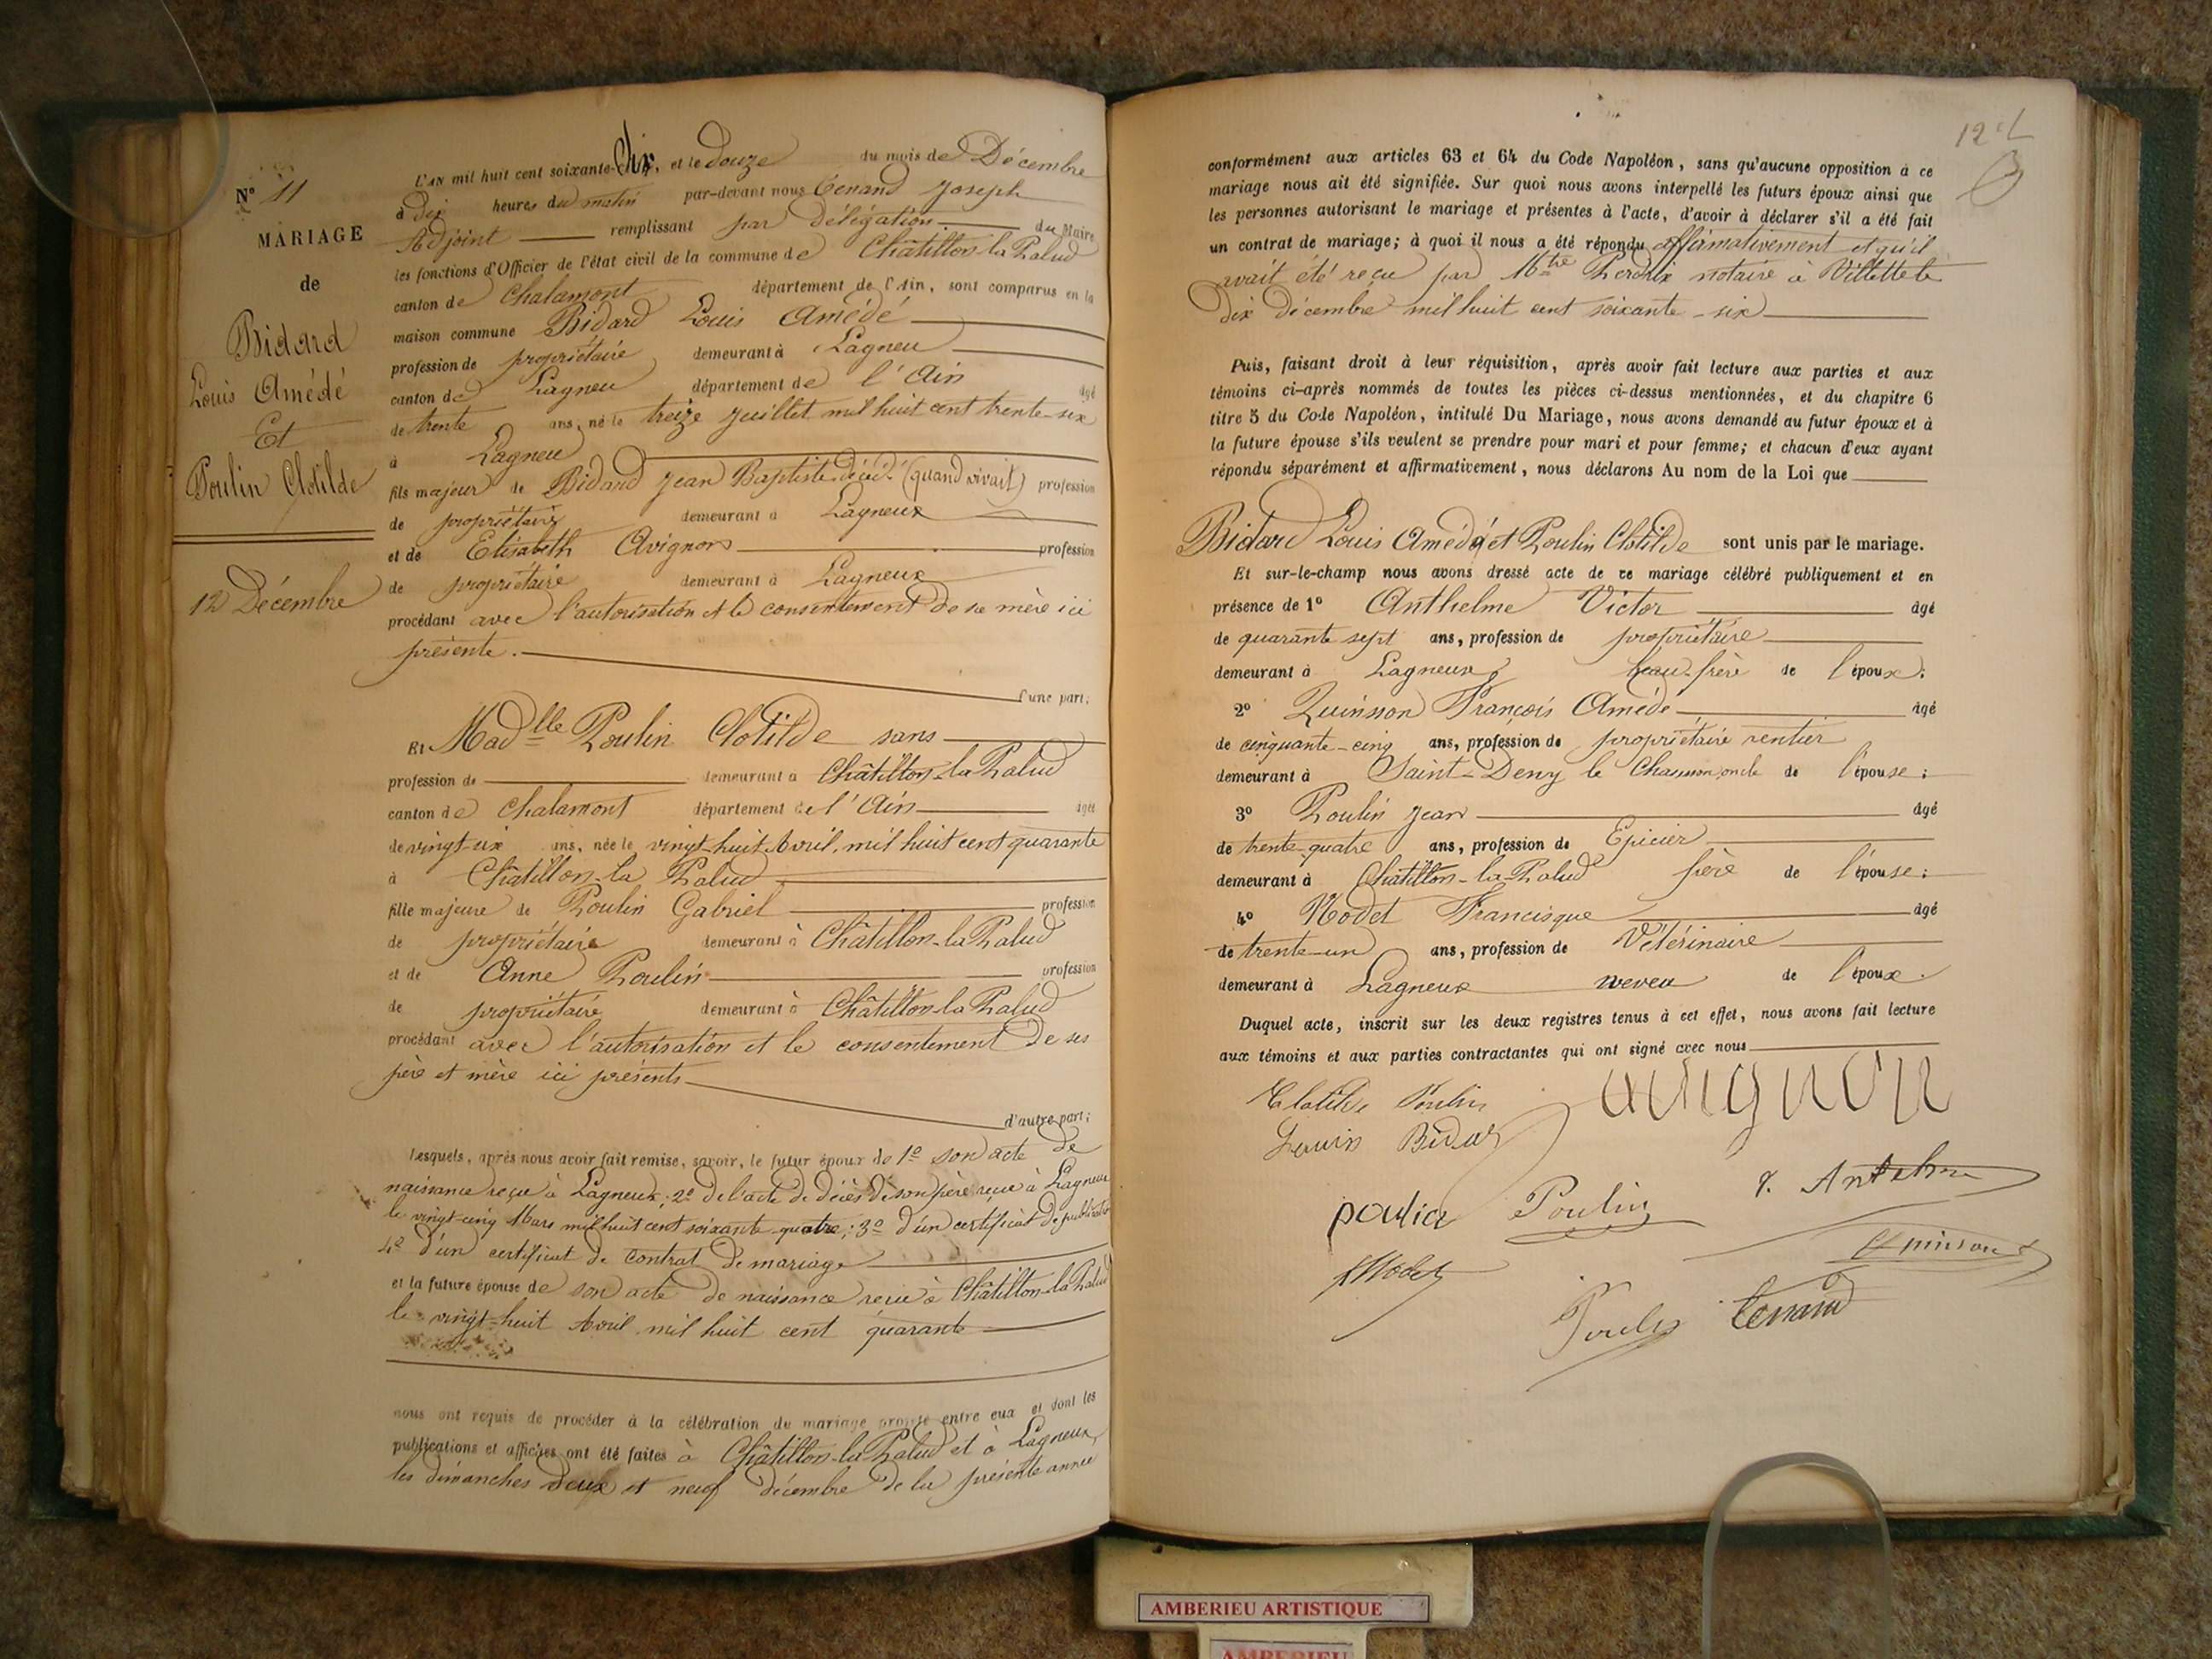 N° 11
MARIAGE
de
Bidard
Louis Amédé
Et
Poulin Clotilde
12 Décembre
L'AN mil huit cent soixante-six, et le douze du mois de Décembre
à dix heures du matin par-devant nous Joseph
Adjoint remplissant par délégation du Maire
les fonctions d'Officier de l'état civil de la commune de Châtillon-la-Palud
canton de Chalamont département de l'Ain, sont comparus en la
maison commune Bidard Louis Amédé
profession de propriétaire demeurant à Lagneu
canton de Lagneu département de l'Ain âgé
de trente ans, né le treize juillet mil huit cent trente-six
à Lagneu
fils majeur de Bidard Jean Baptiste décédé (quand vivait) profession
de propriétaire demeurant à Lagneux
et de Elisabeth Avignon profession
de propriétaire demeurant à Lagneux
procédant avec l'autorisation et le consentement de sa mère ici
présente.
d'une part;
Et Madlle Poulin Clotilde sans
profession de demeurant à Châtillon-la-Palud
canton de Chalamont département de l'Ain âgée
de vingt-six ans, née le vingt-huit Avril, mil huit cent quarante
à Châtillon-la-Palud
fille majeure de Poulin Gabriel profession
de propriétaire demeurant à Châtillon-la-Palud
et de Anne Poulin profession
de propriétaire demeurant à Châtillon-la-Palud
procédant avec l'autorisation et le consentement de ses
père et mère ici présents
d'autre part;
Lesquels, après nous avoir fait remise, savoir, le futur époux de 1° son acte de
naissance reçu à Lagneux; 2° de l'acte de décès de son père reçu à Lagneux
le vingt-cinq Mars mil huit cent soixante-quatre; 3° d'un certificat de publication
4° d'un certificat de contrat de mariage
et la future épouse de son acte de naissance reçu à Châtillon-la-Palud
le vingt-huit Avril mil huit cent quarante
nous ont requis de procéder à la célébration du mariage projeté entre eux et dont les
publications et affiches ont été faites à Châtillon-la-Palud et à Lagneux,
les dimanches deux et neuf décembre de la présente année
conformément aux articles 63 et 64 du Code Napoléon, sans qu'aucune opposition à ce
mariage nous ait été signifiée. Sur quoi nous avons interpellé les futurs époux ainsi que
les personnes autorisant le mariage et présentes à l'acte, d'avoir à déclarer s'il a été fait
un contrat de mariage; à quoi il nous a été répondu affirmativement et qu'il
avait été reçu par Mtre Perdrix notaire à Villette le
dix décembre mil huit cent soixante-six
Puis, faisant droit à leur réquisition, après avoir fait lecture aux parties et aux
témoins ci-après nommés de toutes les pièces ci-dessus mentionnées, et du chapitre 6
titre 5 du Code Napoléon, intitulé Du Mariage, nous avons demandé au futur époux et à
la future épouse s'ils veulent se prendre pour mari et pour femme; et chacun d'eux ayant
répondu séparément et affirmativement, nous déclarons Au nom de la Loi que
Bidard Louis Amédé et Poulin Clotilde sont unis par le mariage.
Et sur-le-champ nous avons dressé acte de ce mariage célébré publiquement et en
présence de 1° Anthelme Victor âgé
de quarante sept ans, profession de propriétaire
demeurant à Lagneux beau-frère de l'époux;
2° Quinson François Amédé âgé
de cinquante-cinq ans, profession de propriétaire rentier
demeurant à Saint-Deny le Chausson, oncle de l'épouse;
3° Poulin Jean âgé
de trente-quatre ans, profession de Epicier
demeurant à Châtillon-la-Palud frère de l'épouse;
4° Nodet Francisque âgé
de trente-un ans, profession de Vétérinaire
demeurant à Lagneux neveu de l'époux.
Duquel acte, inscrit sur les deux registres tenus à cet effet, nous avons fait lecture
aux témoins et aux parties contractantes qui ont signé avec nous
Clotilde Poulin avignon
Louis Bidard
Poulin V. Anthelme
Nodet Quinson
Poulin
AMBERIEU ARTISTIQUE
AMBERIEU